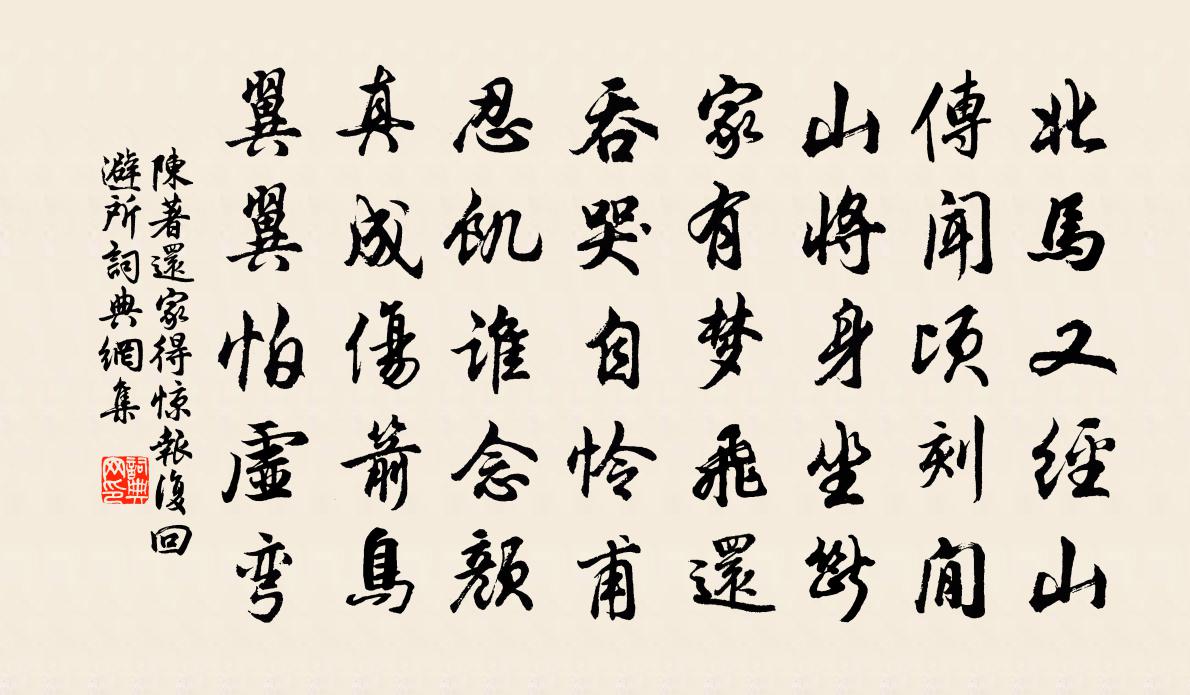 北馬又經山
傳聞頃刻間
山將身坐斷
家有梦飛還
吞哭自怜甫
忍飢谁念顏
真成傷箭鳥
翼翼怕虛弯
陳著還家得惊報復回
避所詞典網集
詞典网印